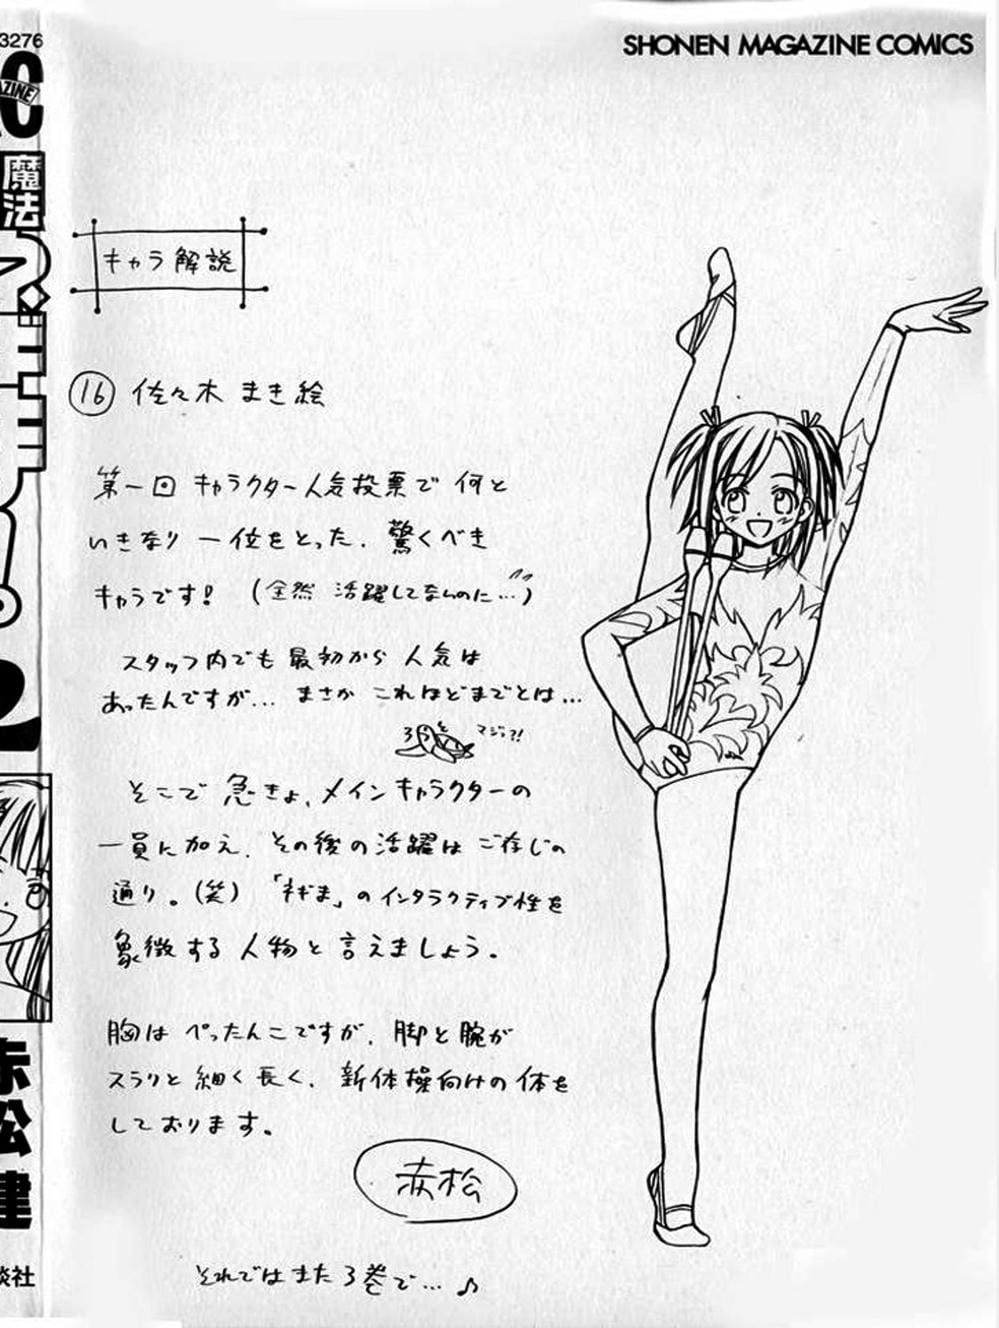 SHONEN MAGAZINE COMICS
3276
魔法
2
赤松 健
談社
キャラ解説
⑯ 佐々木 まき絵
第一回 キャラクター人気投票で 何と
いきなり 一位をとった、驚くべき
キャラです! (全然 活躍してなんのに…)
スタッフ内でも 最初から 人気は
あったんですが… まさか これほどまでとは…
マジっ?!
そこで 急きょ、メインキャラクターの
一員に加え、その後の活躍は ご存じの
通り。(笑) 「ネギま」のインタラクティブ性を
象徴する人物と言えましょう。
胸は ぺったんこですが、脚と腕が
スラリと 細く長く、新体操向けの体を
しております。
赤松
それではまた3巻で…♪